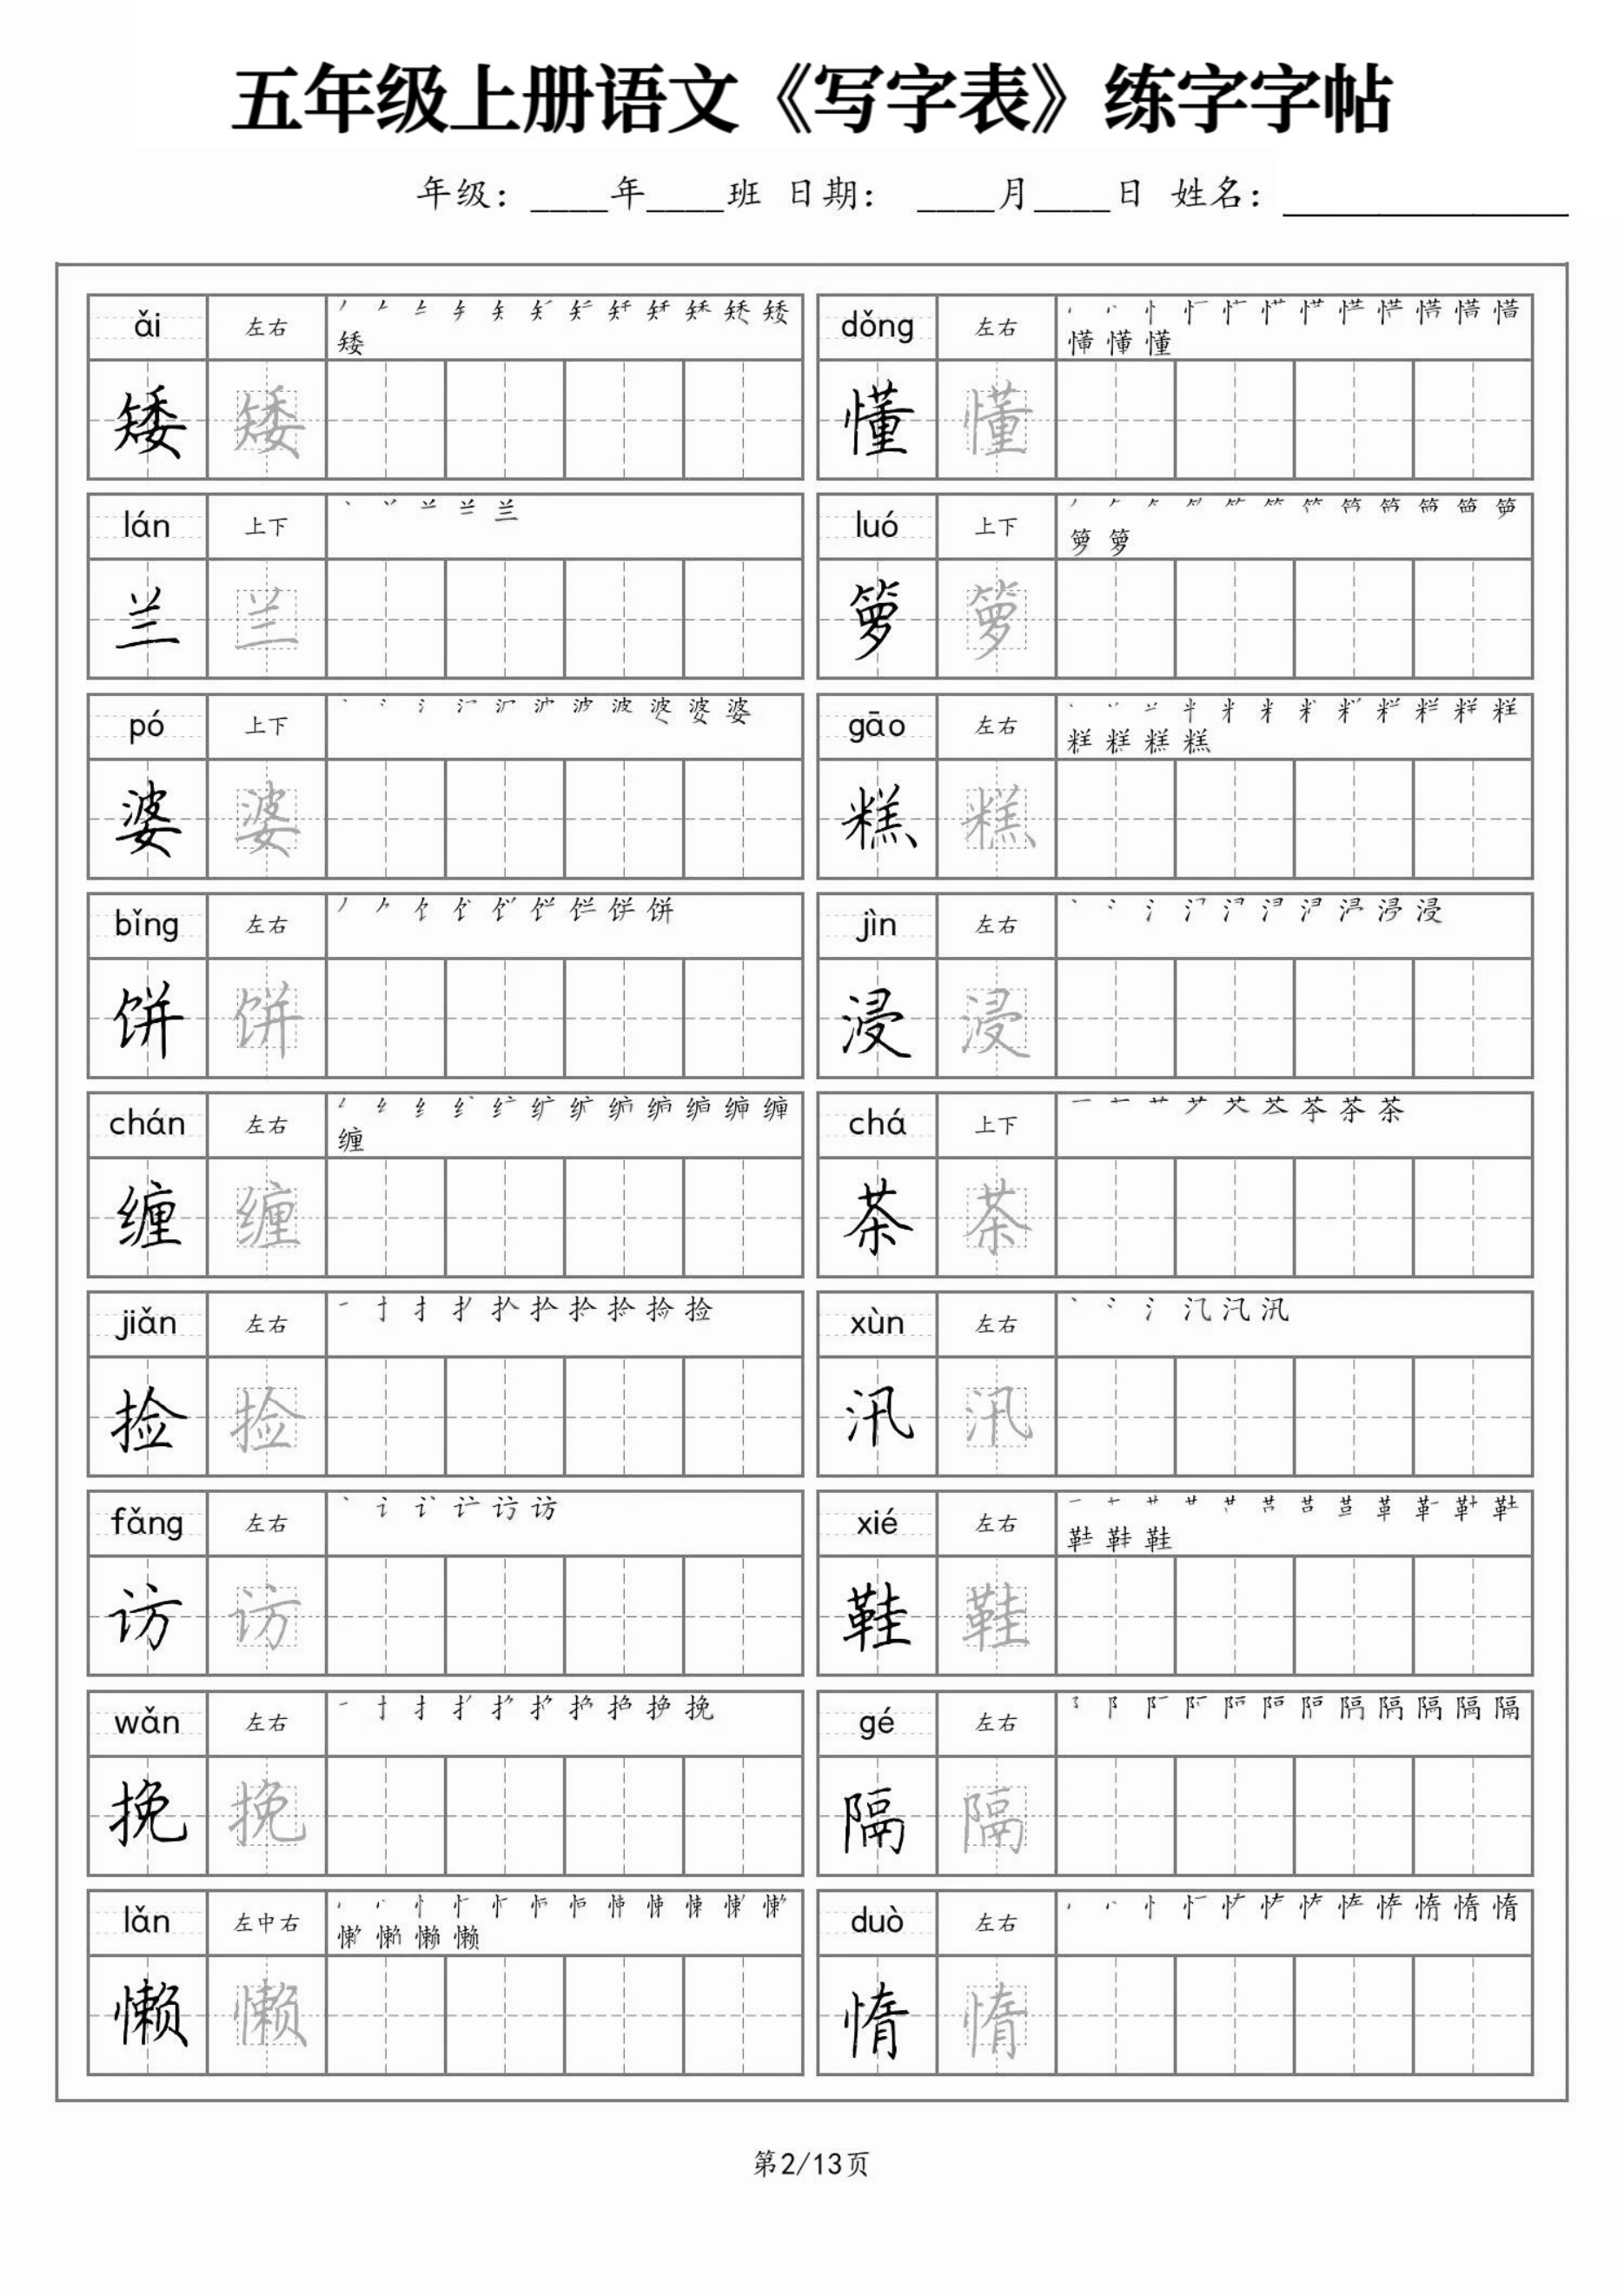 五年级上册语文《写字表》练字字帖
年级：____年____班 日期： ____月____日 姓名：
ǎi 左右
矮
矮 矮
dǒng 左右
懂 懂
lán 上下 兰
兰 兰
luó 上下
箩 箩
箩 箩
pó 上下 婆 婆
婆 婆
gāo 左右
糕
糕 糕
bǐng 左右 饼
饼 饼
jìn 左右 浸
浸 浸
chán 左右
缠
缠 缠
chá 上下 茶
茶 茶
jiǎn 左右 捡
捡 捡
xùn 左右 汛
汛 汛
fǎng 左右 访
访 访
xié 左右
鞋
鞋 鞋
wǎn 左右 挽
挽 挽
gé 左右 隔
隔 隔
lǎn 左中右
懒
懒 懒
duò 左右 惰
惰 惰
第2/13页